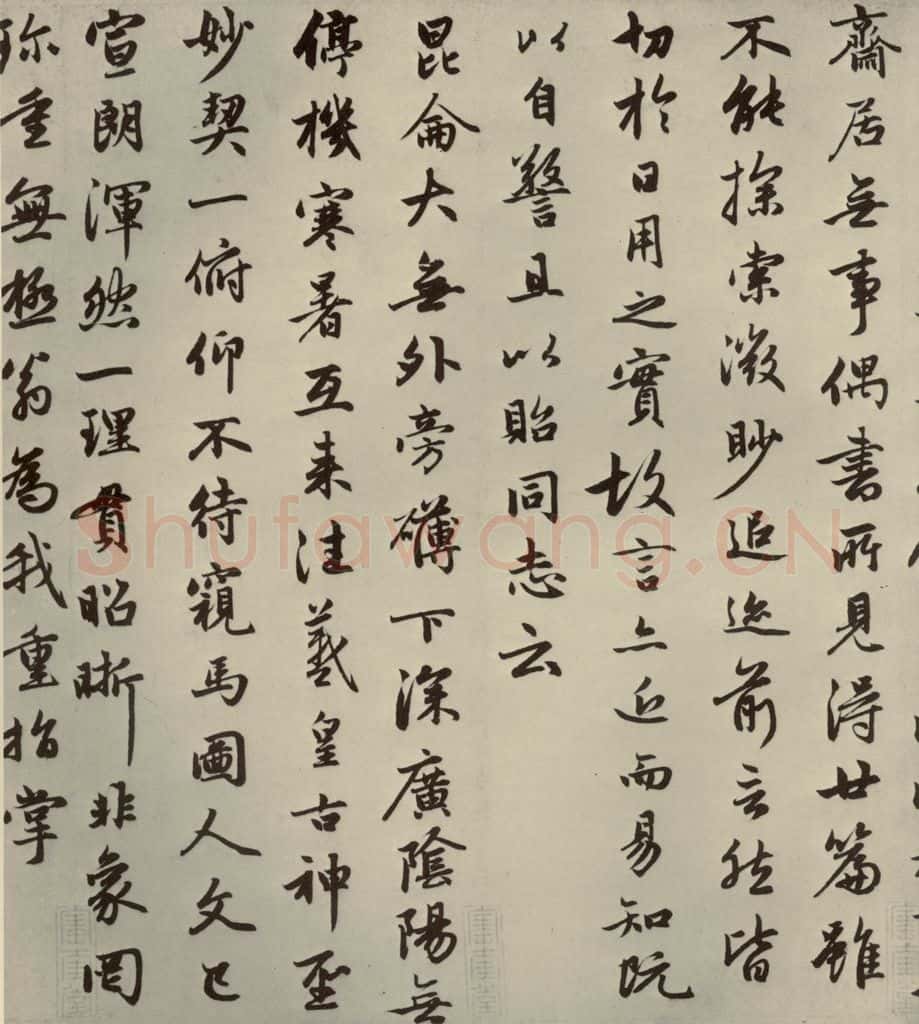 齋居無事偶書所見得廿篇雖
不能探索微眇追迹前言然皆
切於日用之實故言亦近而易知既
以自警且以貽同志云
昆侖大無外旁礴下深廣陰陽無
停機寒暑互來往羲皇古神聖
妙契一俯仰不待窺馬圖人文已
宣朗渾然一理貫昭晰非象罔
珍重無極翁為我重指掌
Shufawang.CN